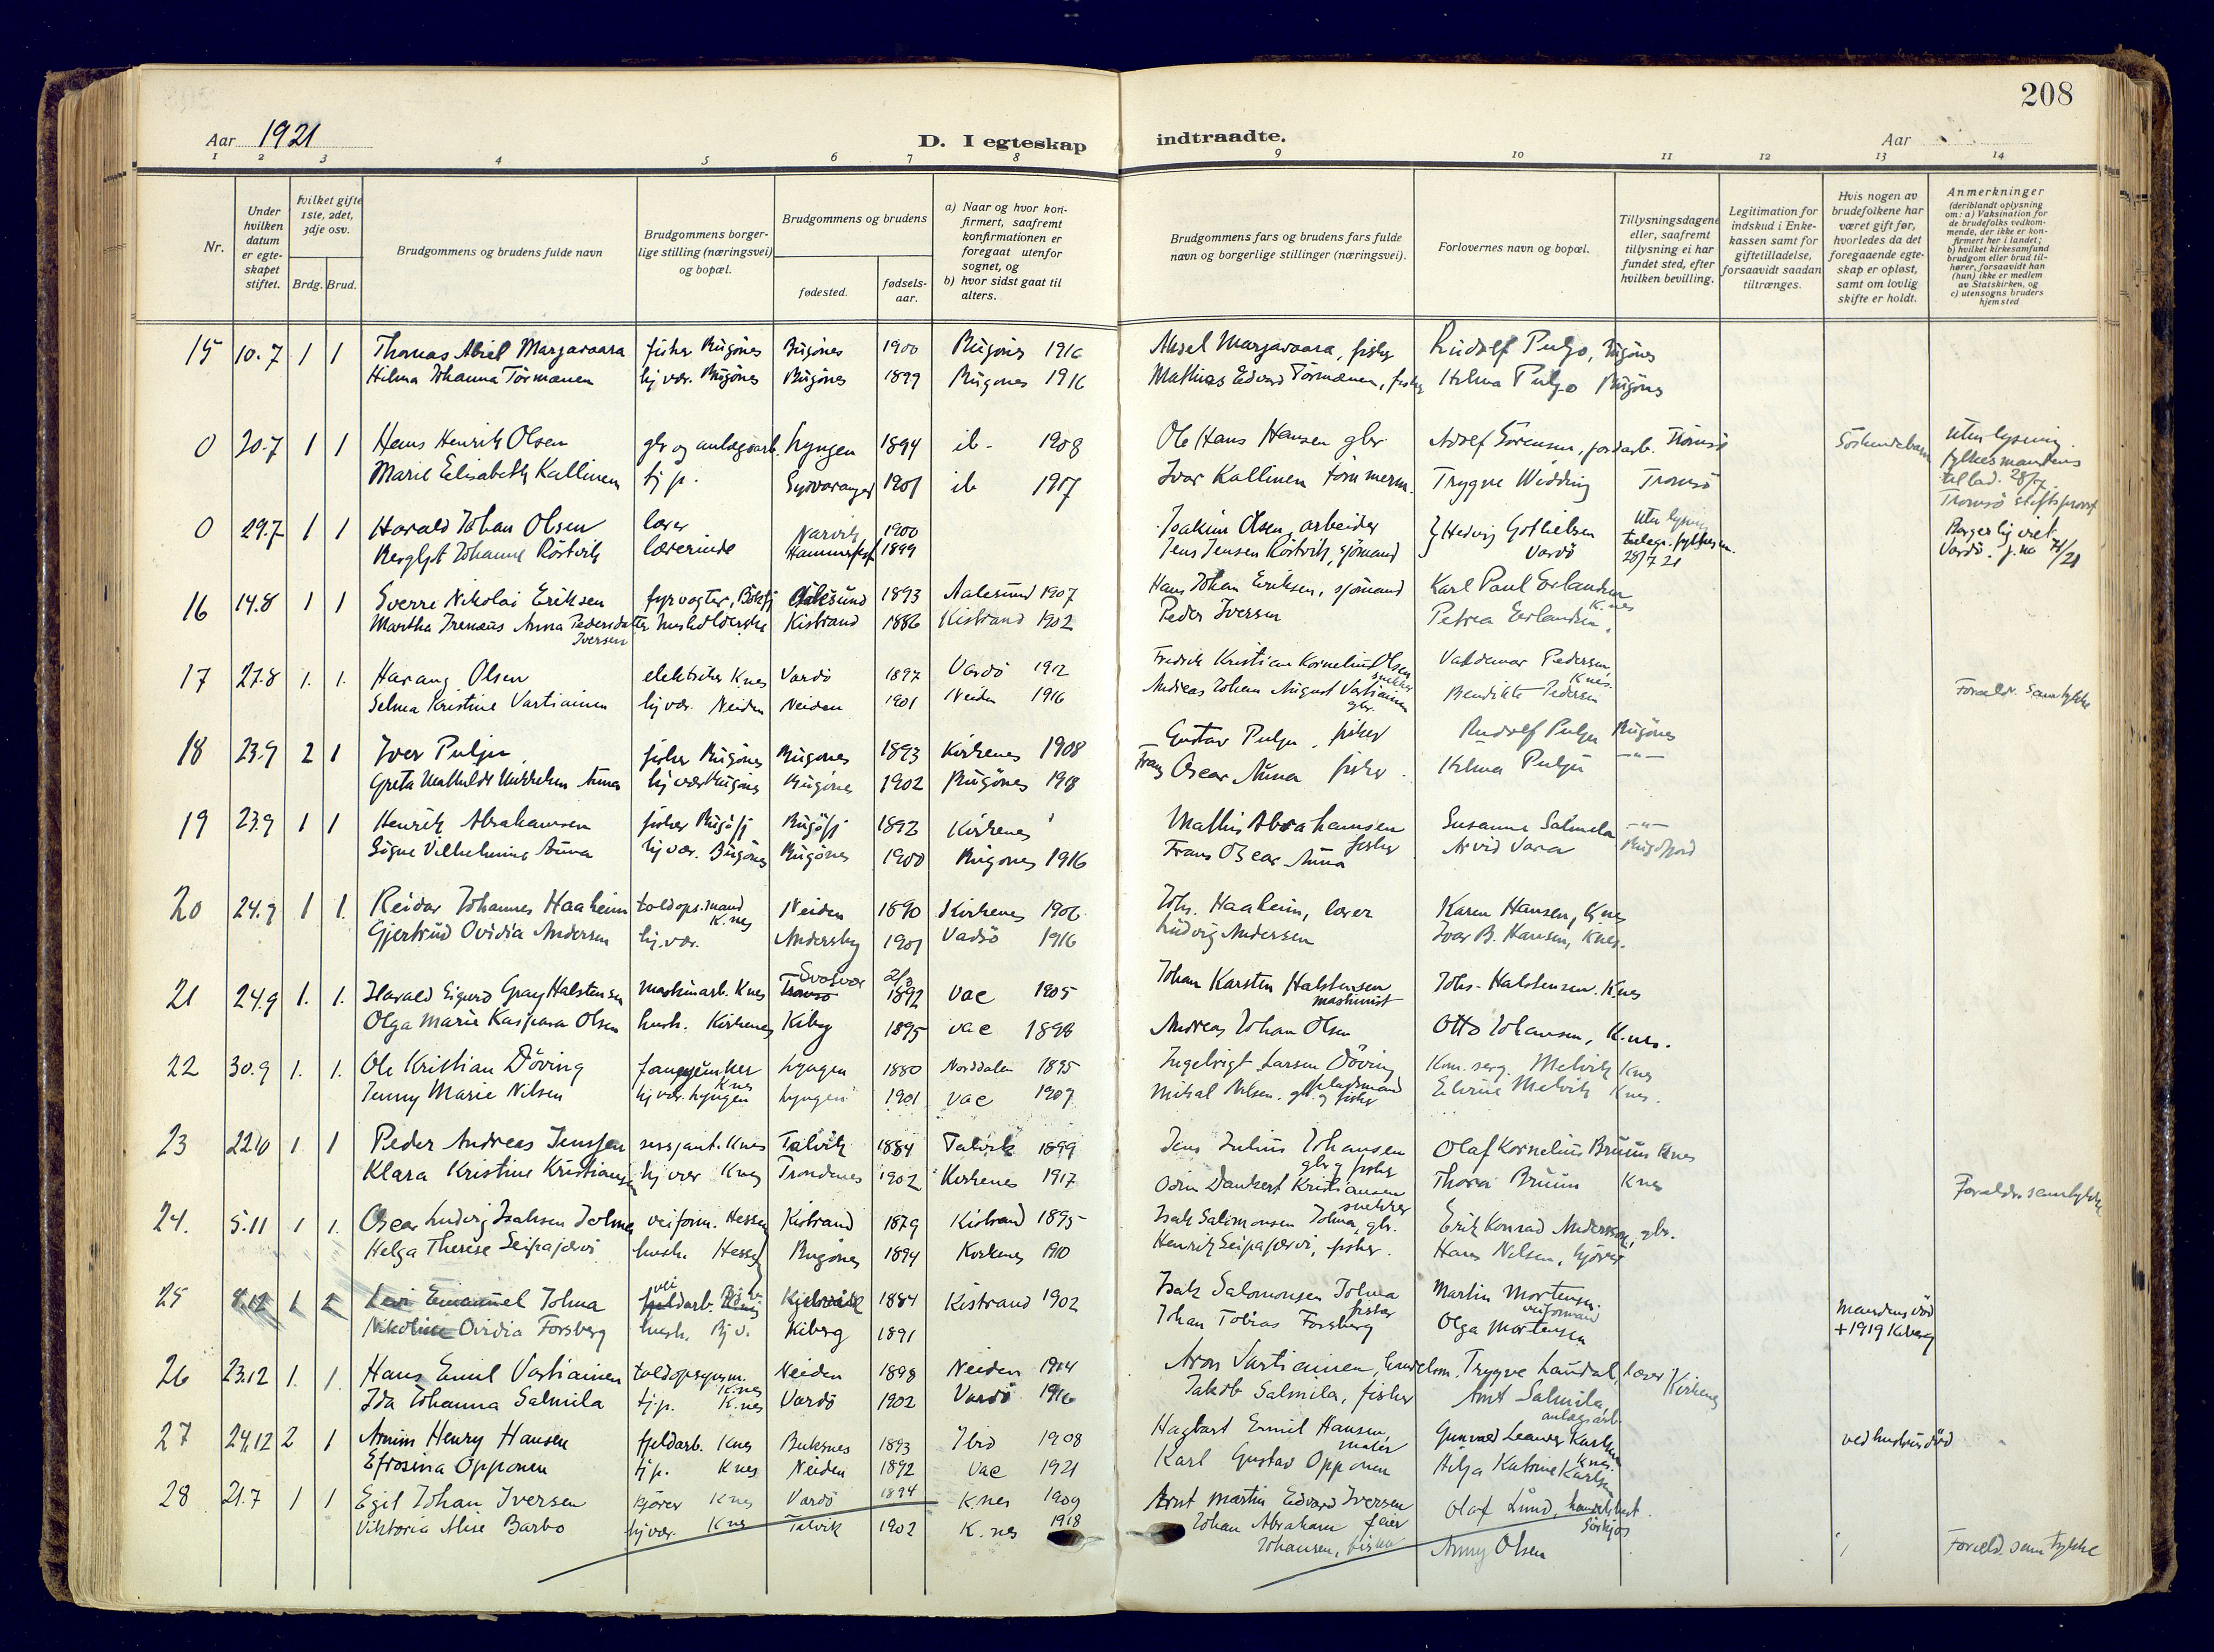 208
Aar 1921
D. I egteskap indtraadte.
Aar
1 2 3 4 5 6 7 8 9 10 11 12 13 14
Nr.
Under hvilken datum er egteskapet stiftet.
Hvilket gifte 1ste, 2det, 3dje osv.
Brdg. Brud.
Brudgommens og brudens fulde navn
Brudgommens borgerlige stilling (næringsvei) og bopæl.
Brudgommens og brudens
fødested.
fødselsaar.
a) Naar og hvor konfirmert, saafremt konfirmationen er foregaat utenfor sognet, og
b) hvor sidst gaat til alters.
Brudgommens fars og brudens fars fulde navn og borgerlige stillinger (næringsvei).
Forlovernes navn og bopæl.
Tillysningsdagene eller, saafremt tillysning ei har fundet sted, efter hvilken bevilling.
Legitimation for indskud i Enkekassen samt for giftetilladelse, forsaavidt saadan tiltrænges.
Hvis nogen av brudefolkene har været gift før, hvorledes da det foregaaende egteskap er opløst, samt om lovlig skifte er holdt.
Anmerkninger (deriblandt oplysning om: a) Vaksination for de brudefolks vedkommende, der ikke er konfirmert her i landet; b) hvilket kirkesamfund brudgom eller brud tilhører, forsaavidt han (hun) ikke er medlem av Statskirken, og c) utensogns bruders hjemsted
15 10.7 1 1 Thomas Abiel Marjavaara fisker Bugönes Bugönes 1900 Bugönes 1916 Aksel Marjavaara, fisker Rudolf Puljo, Bugönes
Hilma Johanna Törmänen hj vær. Bugönes Bugönes 1899 Bugönes 1916 Mathias Edvard Törmänen, fisker Hilma Puljo Bugönes
0 20.7 1 1 Hans Henrik Olsen gbr og anlægsarb. Lyngen 1894 ib - 1908 Ole Hans Hansen gbr Adolf Sörensen, jordarb. Tromsö Söskendebarn Uten lysning. fylkesmandens tillad. 28/7 Tromsö stiftsprovst
Marie Elisabeth Kallinen tj p. Sydvaranger 1901 ib 1917 Ivar Kallinen tömmerm. Trygve Widding Tromsö
0 29.7 1 1 Harald Johan Olsen lærer Narvik 1900 Joakim Olsen, arbeider Hedvig Gotliebsen Vardö Uten lysning telegr. fylkesm. 28/7 21 Borgerlig viet Vardö. j. no 71/21
Bergljot Johanne Röstvik lærerinde Hammerfest 1899 Jens Jensen Röstvik, sjömand
16 14.8 1 1 Sverre Nikolai Eriksen fyrvogter, Bökfj Aalesund 1893 Aalesund 1907 Hans Johan Eriksen, sjömand Karl Paul Erlandsen K.nes
Martha Irenæus Anna Pedersdatter Iversen husholderske Kistrand 1886 Kistrand 1902 Peder Iversen Petrea Erlandsen,
17 27.8 1. 1. Harang Olsen elektriker K.nes Vardö 1897 Vardö 1912 Fredrik Kristian Kornelius Olsen snekker Valdemar Pedersen, K.nes.
Selma Kristine Vartiainen hj vær. Neiden Neiden 1901 Neiden 1916 Andreas Johan August Vartiainen gbr. Bendikte Pedersen Forældr. samtykke
18 23.9 2 1 Iver Pulju fisker Bugönes Bugönes 1893 Kirkenes 1908 Gustav Pulju, fisker Rudolf Pulju Bugönes
Greta Mathilde Anna hj vær Bugönes Bugönes 1902 Bugönes 1918 Frans Oscar Auna fisker. Hilma Pulju -"-
19 23.9 1 1 Henrik Abrahamsen fisker Bugöfj Bugöfj 1892 Kirkenes Mathis Abrahamsen fisker Susanne Salmela -"-
Signe Vilhelmine Auna hj vær. Bugönes Bugönes 1900 Bugönes 1916 Frans Oscar Auna Arvid Vara Bugöfjord
20 24.9 1 1. Reidar Johannes Haaheim toldops.mand K.nes Neiden 1890 Kirkenes 1906 Johs. Haaheim, lærer Karen Hansen, K.nes
Gjertrud Ovidia Andersen hj. vær. Andersby 1901 Vadsö 1916 Ludvig Andersen Ivar B. Hansen, Knes.
21 24.9 1. 1. Harald Sigurd Gray Halstensen maskinarb. Knes Tromsö Svolvær 2/3 1892 vac 1905 Johan Karsten Halstensen maskinist Johs. Halstensen. K.nes
Olga Marie Kaspara Olsen hush. Kirkenes Kiberg 1895 vac 1898 Andreas Johan Olsen Otto Johansen, K.nes.
22 30.9 1. 1. Ole Kristian Döving Knes Lyngen 1880 Norddalen 1895 Ingebrigt Larsen Döving Kom. serg. Melvik Knes
Jenny Marie Nilsen hj vær. Lyngen Lyngen 1901 vac 1907 Mikal Nilsen. gbr. og fisker Melvik Knes.
23 22.10 1. 1 Peder Andreas Jenssen sersjant. Knes Talvik 1884 Talvik 1899 Jens Julius Johansen gbr og fisker Olaf Kornelius Bruun Knes
Klara Kristine Kristiansen hj vær Knes Trondenes 1902 Kirkenes 1917 Odin Dankert Kristiansen snekker Thora Bruun Knes Forældr. samtykke
24. 5.11 1 1. Oscar Ludvig Isaksen Tolma veiform. Hesseng Kistrand 1879 Kistrand 1895 Isak Salomonsen Tolma, gbr. Erik Konrad Andersson, gbr.
Helga Therese Seipajærvi hush. Hesseng Bugönes 1894 Kirkenes 1910 Henrik Seipajærvi, fisker. Hans Nilsen, kjörer
25 8.12 1 2 Levi Emanuel Tolma veiarb. Kistrand 1884 Kistrand 1902 Isak Salomonsen Tolma fisker Martin Mortensen. veiformand Mandens död + 1919 Kiberg
Nikoline Ovidia Forsberg hush. Bj v. Kiberg 1891 Johan Tobias Forsberg Olga Mortensen
26 23.12 1. 1. Hans Emil Vartiainen toldopsynsm. K.nes Neiden 1898 Neiden 1914 Aron Vartiainen, handelsm. Trygve Laudal, lærer Kirkenes
Ida Johanna Salmila tj. p. K.nes Vardö 1902 Vardö 1916 Jakob Salmila, fisker Arnt Salmila, anlægsarb
27 24.12 2 1 Armin Henry Hansen fjeldarb. Knes Buksnes 1893 Ibid 1908 Hagbart Emil Hansen, maler Gunvald Leander Karlsen Knes. ved hustrus död
Efrosina Opponen tj p. Knes Neiden 1892 vac 1921 Karl Gustav Opponen Hilja Katrine Karlsen
28 21.7 1 1 Egil Johan Iversen kjörer Knes Vardö 1894 K.nes 1909 Arnt Martin Edvard Iversen feier Olaf Lund, handelsbest.
Viktoria Alise Barbo hj vær. Knes Talvik 1902 K.nes 1918 Johan Abraham Johansen, fisker Anny Olsen Foreld. samtykke